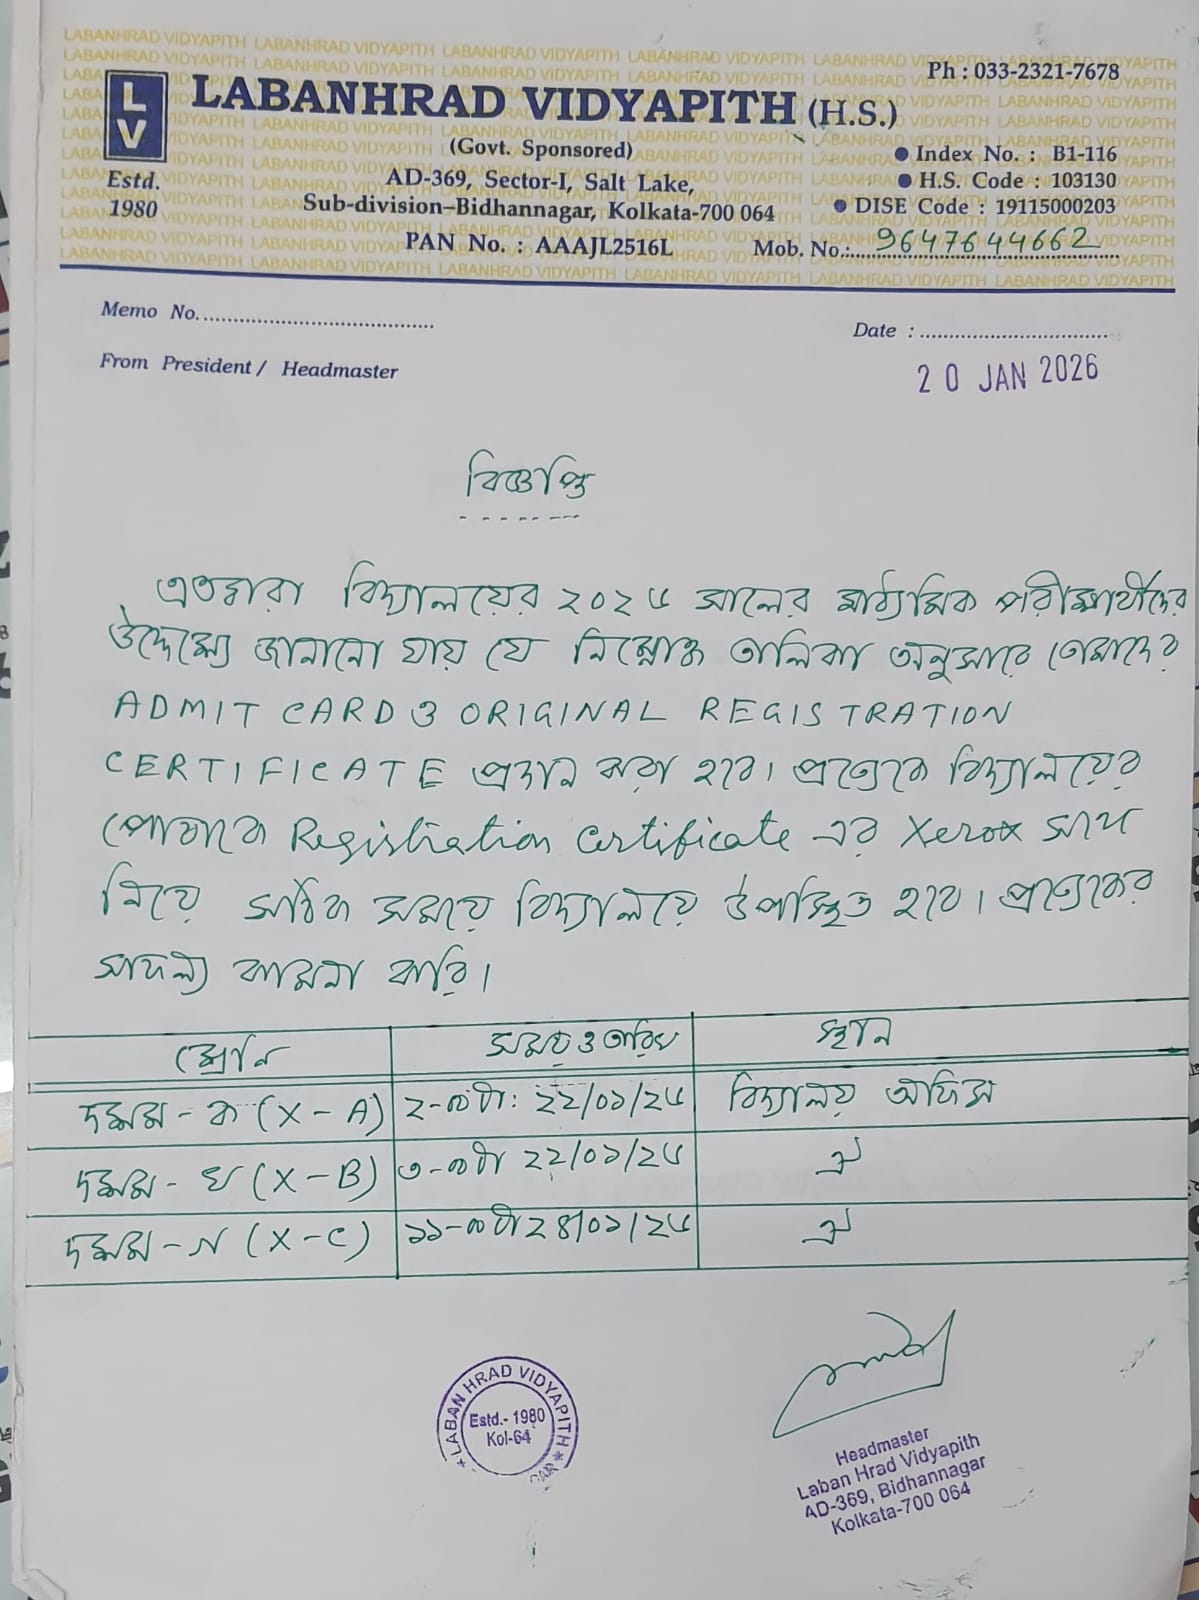 Ph : 033-2321-7678
LV
LABANHRAD VIDYAPITH (H.S.)
(Govt. Sponsored)
Estd. 1980
AD-369, Sector-I, Salt Lake,
Sub-division–Bidhannagar, Kolkata-700 064
PAN No. : AAAJL2516L
● Index No. : B1-116
● H.S. Code : 103130
● DISE Code : 19115000203
Mob. No.: 9647644662
Memo No.
Date :
From President / Headmaster
20 JAN 2026
বিজ্ঞপ্তি
এতদ্বারা বিদ্যালয়ের ২০২৬ সালের মাধ্যমিক পরীক্ষার্থীদের
উদ্দেশ্যে জানানো যায় যে নিম্নোক্ত তালিকা অনুসারে তোমাদের
ADMIT CARD ও ORIGINAL REGISTRATION
CERTIFICATE প্রদান করা হবে। প্রত্যেকে বিদ্যালয়ের
পোষাকে Registration Certificate এর Xerox সাথে
নিয়ে সঠিক সময়ে বিদ্যালয়ে উপস্থিত হবে। প্রত্যেকের
সাফল্য কামনা করি।
শ্রেনি সময় ও তারিখ স্থান
দশম - ক (X - A) ২-৩০টা: ২২/০১/২৬ বিদ্যালয় অফিস
দশম - খ (X - B) ৩-৩০টা ২২/০১/২৬ ঐ
দশম - গ (X - C) ১১-৩০টা ২৪/০১/২৬ ঐ
LABAN HRAD VIDYAPITH
Estd.- 1980
Kol-64
Headmaster
Laban Hrad Vidyapith
AD-369, Bidhannagar
Kolkata-700 064